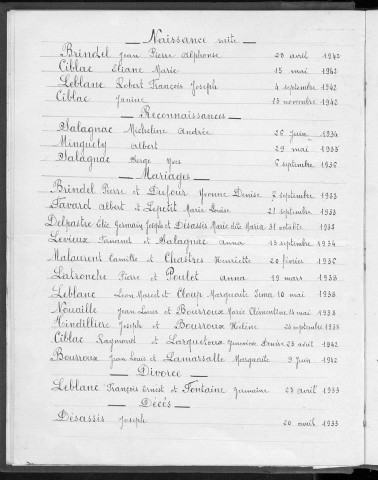 Naissance suite
Brindel Jean Pierre Alphonse 28 avril 1942
Ciblac Eliane Marie 15 mai 1942
Leblanc Robert François Joseph 4 septembre 1942
Ciblac Janine 13 novembre 1942
Reconnaissances
Salagnac Micheline Andrée 26 juin 1934
Minguely Albert 29 mai 1935
Salagnac Serge Yves 6 septembre 1936
Mariages
Brindel Pierre et Dufour Yvonne Denise 2 septembre 1933
Favard Albert et Lepetit Marie Louise 21 septembre 1933
Delpastre Elie Germain Joseph et Désassis Marie dite Maria 31 octobre 1933
Levieux Fernand et Salagnac Anna 13 septembre 1934
Malaurent Camille et Chastres Henriette 20 février 1936
Latronche Pierre et Poulet Anna 19 mars 1938
Leblanc Léon Marcel et Cloup Marguerite Irma 10 mai 1938
Nouaille Jean Louis et Bourroux Marie Clémentine 14 mai 1938
Hindillière Joseph et Bourroux Hélène 24 septembre 1938
Ciblac Raymond et Larquetoux Geneviève Denise 28 avril 1942
Bourroux Jean Louis et Lamarsalle Marguerite 9 juin 1942
Divorce
Leblanc François Ernest et Fontaine Germaine 27 avril 1933
Décès
Désassis Joseph 20 avril 1933